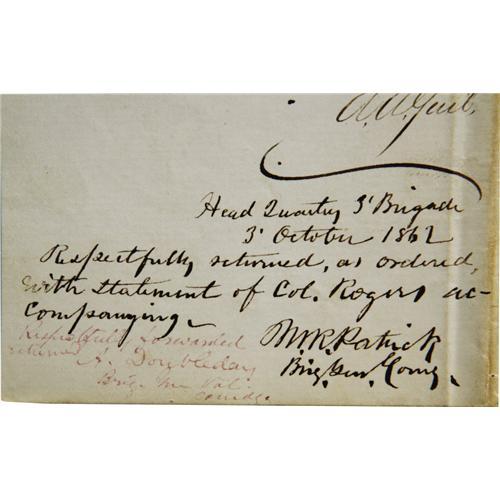 Head Quarters 3' Brigade
3' October 1862
Respectfully returned, as ordered,
with statement of Col. Rogers ac-
companying.
M. R. Patrick
Brig. Genl. Comg.
Respectfully forwarded
returned A. Doubleday
Brig. Vol.
comdg.